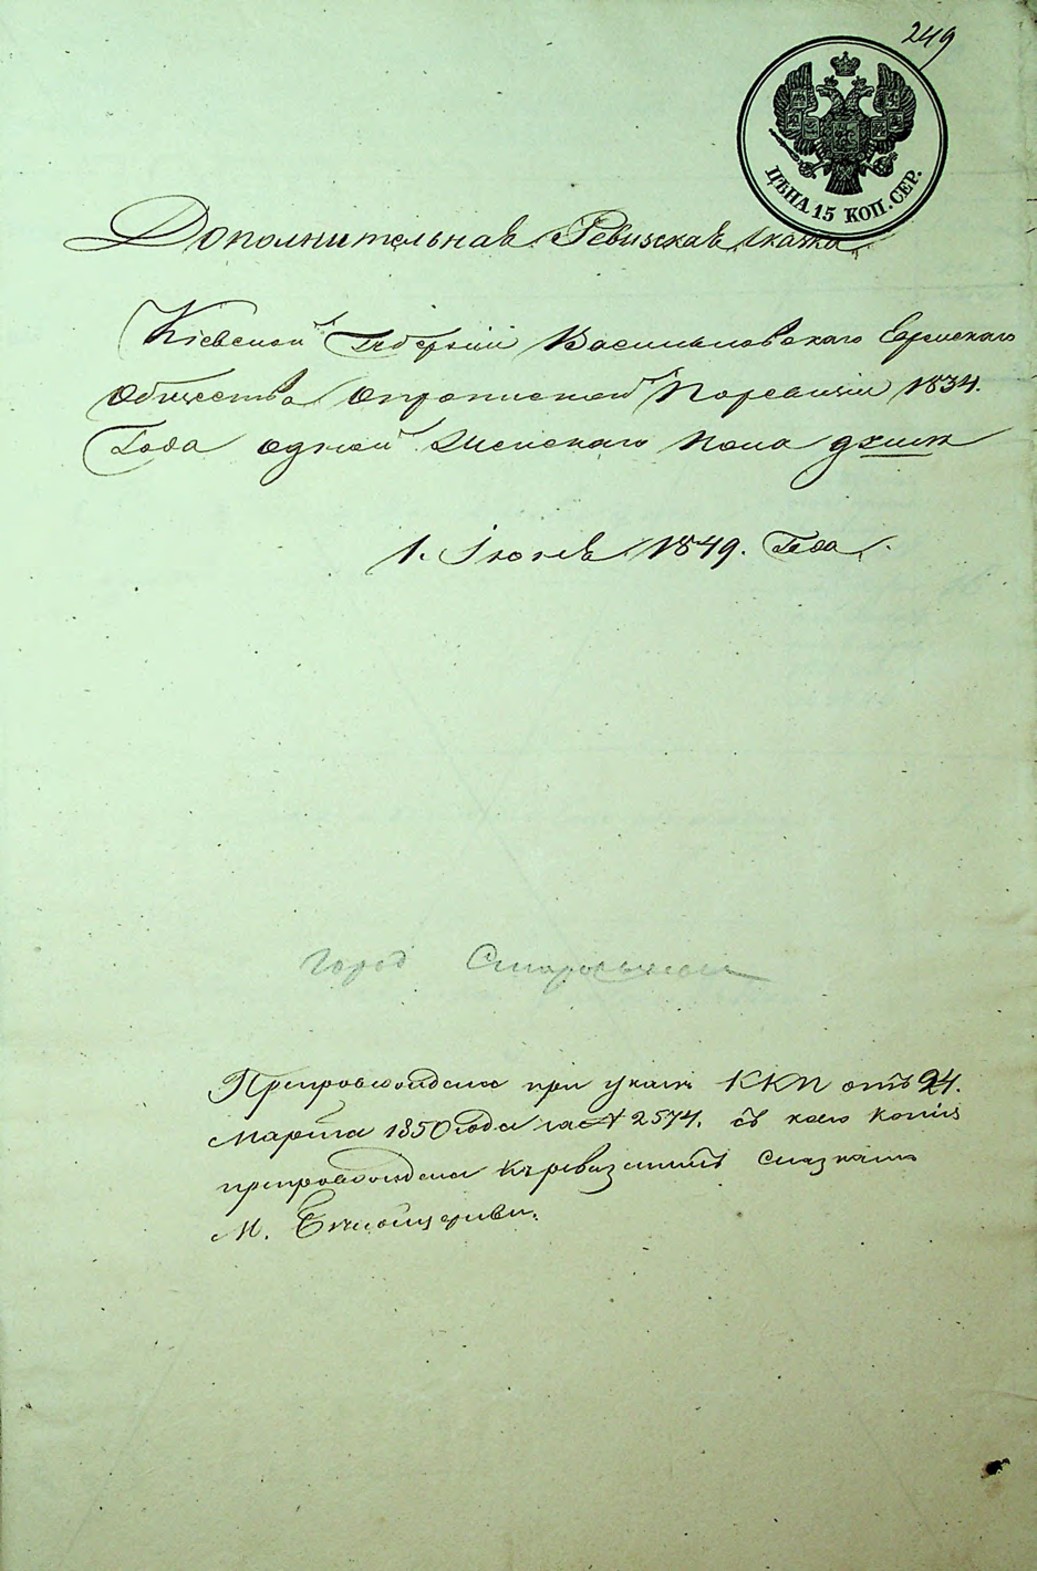 249
ЦѢНА 15 КОП. СЕР.
Дополнительная Ревизская Сказка
Кіевской Губерніи Васильковскаго Еврейскаго
Общества О прописной По ревизіи 1834.
Года одной Женскаго пола души
1. Іюня 1849. Года.
Город
Препровождена при указѣ ККП отъ 24.
Марта 1850 года за № 2574. съ коего копія
препровождена къ ревизскимъ сказкамъ
М. Бѣлойцеркви.